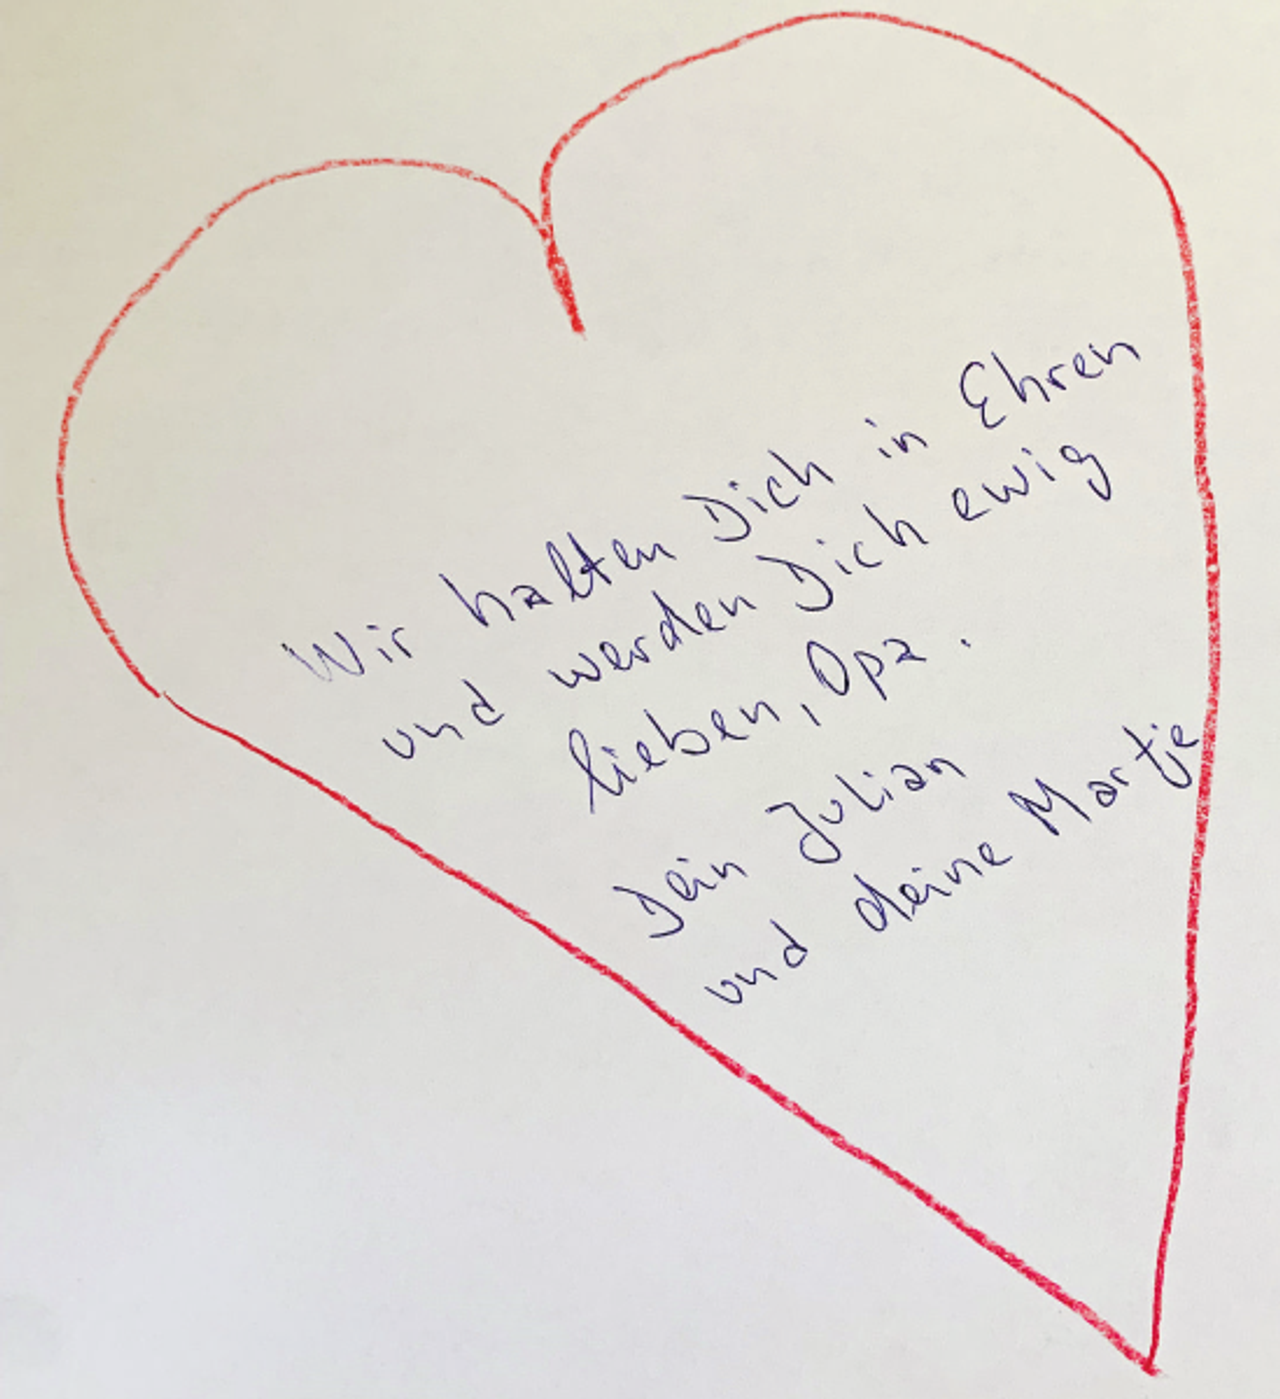 Wir halten Dich in Ehren
und werden Dich ewig
lieben, Opa.
Dein Julian
und deine Martje